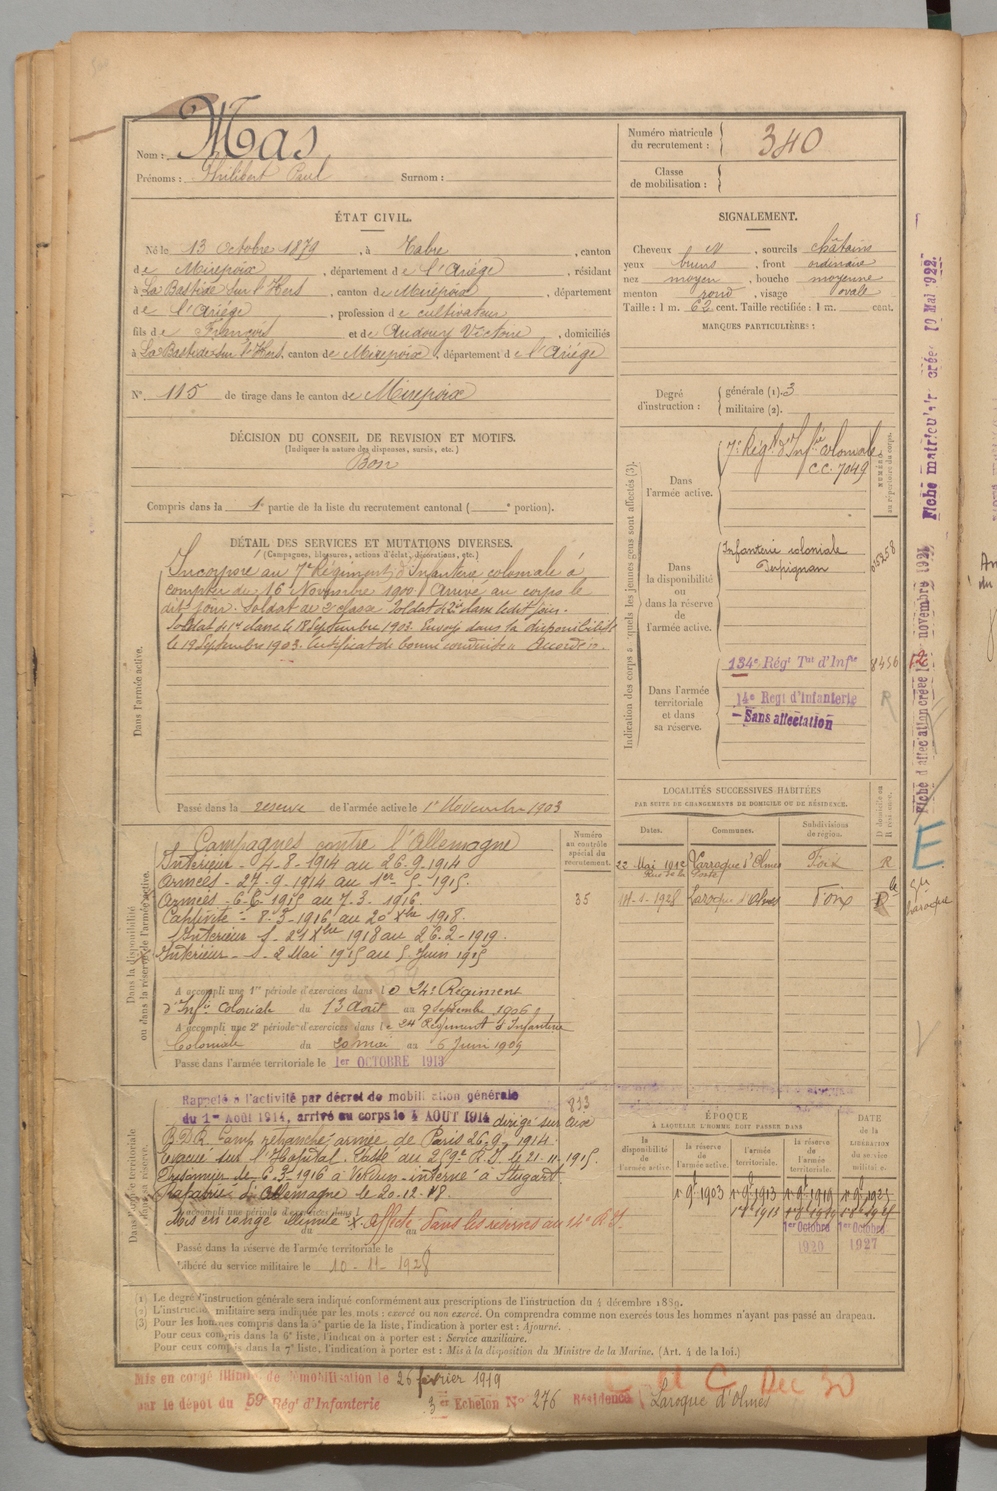 Nom : Mas
Prénoms : Philibert Paul Surnom :
Numéro matricule du recrutement : 340
Classe de mobilisation :
ÉTAT CIVIL.
Né le 13 Octobre 1879, à Tabre, canton
de Mirepoix, département de l'Ariège, résidant
à La Bastide sur l'Hers, canton de Mirepoix, département
de l'Ariège, profession de cultivateur
fils de François et de Audouy Victoire, domiciliés
à La Bastide sur l'Hers, canton de Mirepoix, département de l'Ariège
N° 115 de tirage dans le canton de Mirepoix
SIGNALEMENT.
Cheveux N, sourcils châtains
yeux bruns, front ordinaire
nez moyen, bouche moyenne
menton rond, visage ovale
Taille : 1 m. 62 cent. Taille rectifiée : 1 m. cent.
MARQUES PARTICULIÈRES :
Degré d'instruction : générale (1). 3
militaire (2).
DÉCISION DU CONSEIL DE REVISION ET MOTIFS.
(Indiquer la nature des dispenses, sursis, etc.)
Bon
Compris dans la 1e partie de la liste du recrutement cantonal ( e portion).
DÉTAIL DES SERVICES ET MUTATIONS DIVERSES.
(Campagnes, blessures, actions d'éclat, décorations, etc.)
Dans l'armée active.
Incorporé au 7e Régiment d'Infanterie coloniale à
compter du 16 Novembre 1900. Arrivé au corps le
dit jour. Soldat de 2e classe
Soldat de 1re classe le 18 Septembre 1903. Envoyé dans la disponibilité
le 19 Septembre 1903. Certificat de bonne conduite « Accordé ».
Passé dans la réserve de l'armée active le 1er Novembre 1903
Indication des corps auxquels les jeunes gens sont affectés (3).
NUMÉRO au répertoire du corps.
Dans l'armée active.
7e Régt d'Infie coloniale
C.C. 7049
Dans la disponibilité ou dans la réserve de l'armée active.
Infanterie coloniale
Perpignan
Dans l'armée territoriale et dans sa réserve.
134e Régt Tal d'Infie
14e Regt d'infanterie
Sans affectation
Fiche matriculaire créée 10 Mai 1922.
Fiche d'affectation créée novembre 1921
LOCALITÉS SUCCESSIVES HABITÉES
PAR SUITE DE CHANGEMENTS DE DOMICILE OU DE RÉSIDENCE.
Dates. Communes. Subdivisions de région. D domicile ou R résidence.
22 Mai 1912 Laroque d'Olmes Foix R
Laroque d'Olmes Foix R
E
Laroque
Dans la disponibilité ou dans la réserve de l'armée active.
Numéro au contrôle spécial du recrutement.
35
Campagnes contre l'Allemagne
Intérieur - 4-8-1914 au 26-9-1914
Armées - 27-9-1914 au 1er-5-1915.
Armées - 6-6-1915 au 7-3-1916.
Captivité - 8-3-1916 au 20 Xbre 1918.
Intérieur S - 21 Xbre 1918 au 26-2-1919.
Intérieur - S - 2 Mai 1915 au 5 Juin 1915
A accompli une 1re période d'exercices dans le 24e Régiment
d'Infie Coloniale du 13 Août au 9 Septembre 1906
A accompli une 2e période d'exercices dans le 24e Régiment d'Infanterie
Coloniale du 20 mai au 5 Juin 1909
Passé dans l'armée territoriale le 1er OCTOBRE 1913
Dans l'armée territoriale et dans sa réserve.
Rappelé à l'activité par décret de mobilisation générale
du 1er Août 1914, arrivé au corps le 4 AOUT 1914 dirigé sur
Camp retranché armée de Paris 26-9-1914.
Évacué sur l'Hopital. Passé au 259e R.I. le 21-11-1915.
Prisonnier le 6-3-1916 à Verdun interné à Stugart
Rapatrié d'Allemagne le 20-12-18.
A accompli une période d'exercices dans l
Mis en congé illimité X. Affecté dans les réserves au 14e R.I.
du au
Passé dans la réserve de l'armée territoriale le
Libéré du service militaire le 10-11-1928
ÉPOQUE
À LAQUELLE L'HOMME DOIT PASSER DANS
la disponibilité de l'armée active. la réserve de l'armée active. l'armée territoriale. la réserve de l'armée territoriale.
DATE de la LIBÉRATION du service militaire.
1er 9bre 1903 1er 9bre 1913 1er 9bre 1919 1er 9bre 1925
1er Octobre 1920 1er Octobre 1927
(1) Le degré d'instruction générale sera indiqué conformément aux prescriptions de l'instruction du 4 décembre 1889.
(2) L'instruction militaire sera indiquée par les mots : exercé ou non exercé. On comprendra comme non exercés tous les hommes n'ayant pas passé au drapeau.
(3) Pour les hommes compris dans la 5e partie de la liste, l'indication à porter est : Ajourné.
Pour ceux compris dans la 6e liste, l'indication à porter est : Service auxiliaire.
Pour ceux compris dans la 7e liste, l'indication à porter est : Mis à la disposition du Ministre de la Marine. (Art. 4 de la loi.)
Mis en congé illimité de démobilisation le 26 février 1919
par le dépôt du 59e Régt d'Infanterie 3e Echelon N° 276 Résidence Laroque d'Olmes
C Dec 30